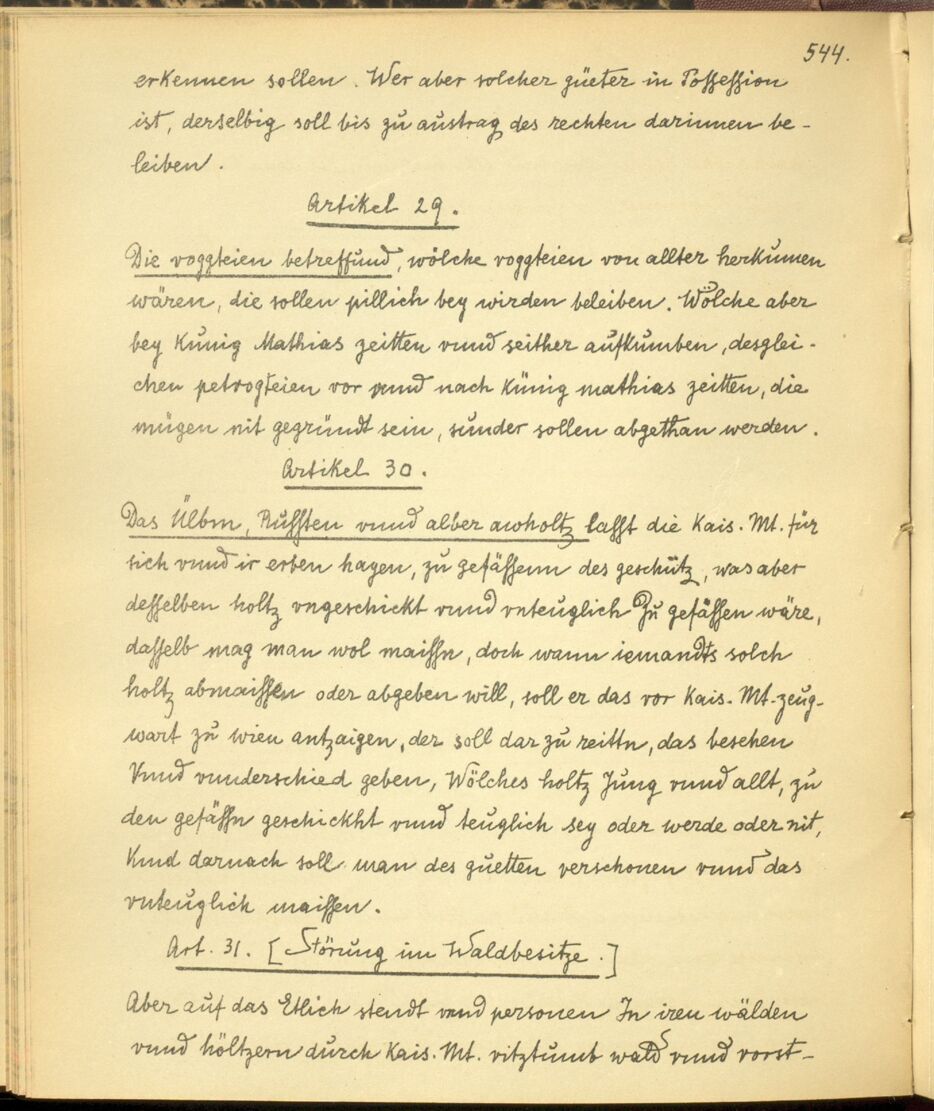 544.
erkennen sollen. Wer aber solcher güeter in Possession
ist, derselbig soll bis zu austrag des rechten darinnen be-
leiben.
Artikel 29.
Die voggteien betreffund, wölche voggteien von allter herkumen
wären, die sollen pillich bey wirden beleiben. Wölche aber
bey Künig Mathias zeitten vnnd seither aufkumben, desglei-
chen petvogteien vor vnnd nach künig mathias zeitten, die
mügen nit gegründt sein, sunder sollen abgethan werden.
Artikel 30.
Das Ülbm, Russten vnnd alber awholtz lasst die Kais. Mt. für
sich vnnd ir erben hayen, zu gefässenn des geschütz, was aber
desselben holtz vngeschickt vnnd vnteuglich Zu gefässen wäre,
dasselb mag man wol maissn, doch wann iemandts solch
holtz abmaissen oder abgeben will, soll er das vor Kais. Mt. zeug-
wart zu wien antzaigen, der soll dar zu reittn, das besehen
Vnnd vnnderschied geben, Wölches holtz Jung vnnd allt, zu
den gefässn geschickht vnnd teuglich sey oder werde oder nit,
Vnnd darnach soll man des guetten verschonen vnnd das
vnteuglich maissen.
Art. 31. [Störung im Waldbesitze.]
Aber auf das Etlich stendt vnnd personen In iren wälden
vnnd höltzern durch Kais. Mt. vitztumb wald vnnd vorst-